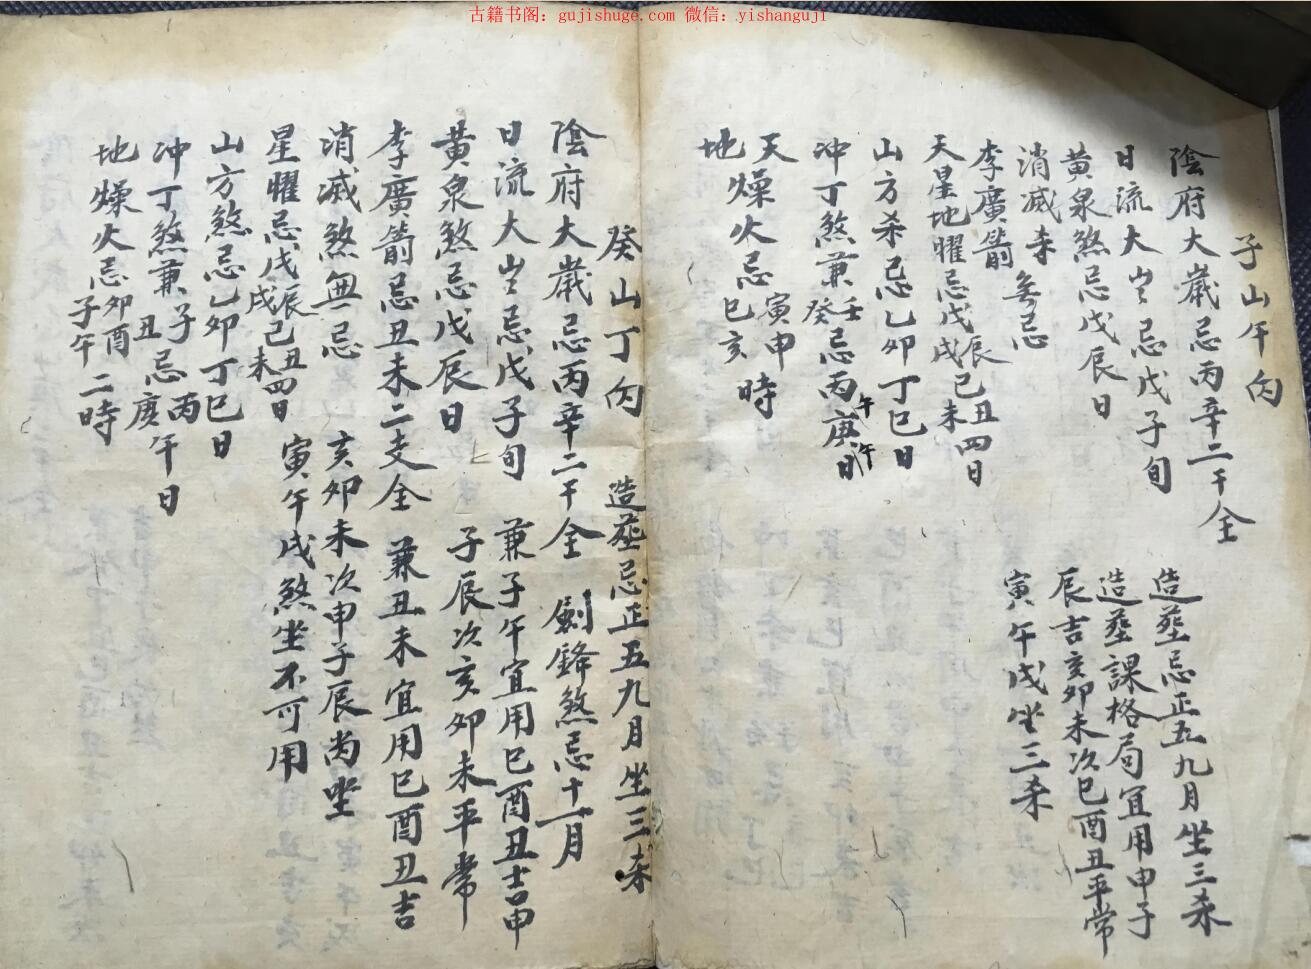 古籍书阁：gujishuge.com 微信：yishanguji
子山午向
陰府大歲忌丙辛二干全 造塟忌正五九月坐三杀
日流大歲忌戊子旬 造塟課格局宜用申子
黄泉煞忌戊辰日 辰吉亥卯未次巳酉丑平常
消减杀無忌 寅午戌坐三杀
李廣箭
天星地曜忌戊辰戌己丑未四日
山方杀忌乙卯丁巳日
冲丁煞兼壬癸忌丙午庚午日
天
地燥火忌寅申巳亥時
癸山丁向 造塟忌正五九月坐三杀
陰府大歲忌丙辛二干全 劍鋒煞忌十一月
日流大歲忌戊子旬 兼子午宜用巳酉丑吉申
黄泉煞忌戊辰日 子辰次亥卯未平常
李廣箭忌丑未二支全 兼丑未宜用巳酉丑吉
消减煞無忌 亥卯未次申子辰为坐
星曜忌戊辰戌己丑未四日 寅午戌煞坐不可用
山方煞忌乙卯丁巳日
冲丁煞兼子丑忌丙庚午日
地燥火忌卯酉子午二時